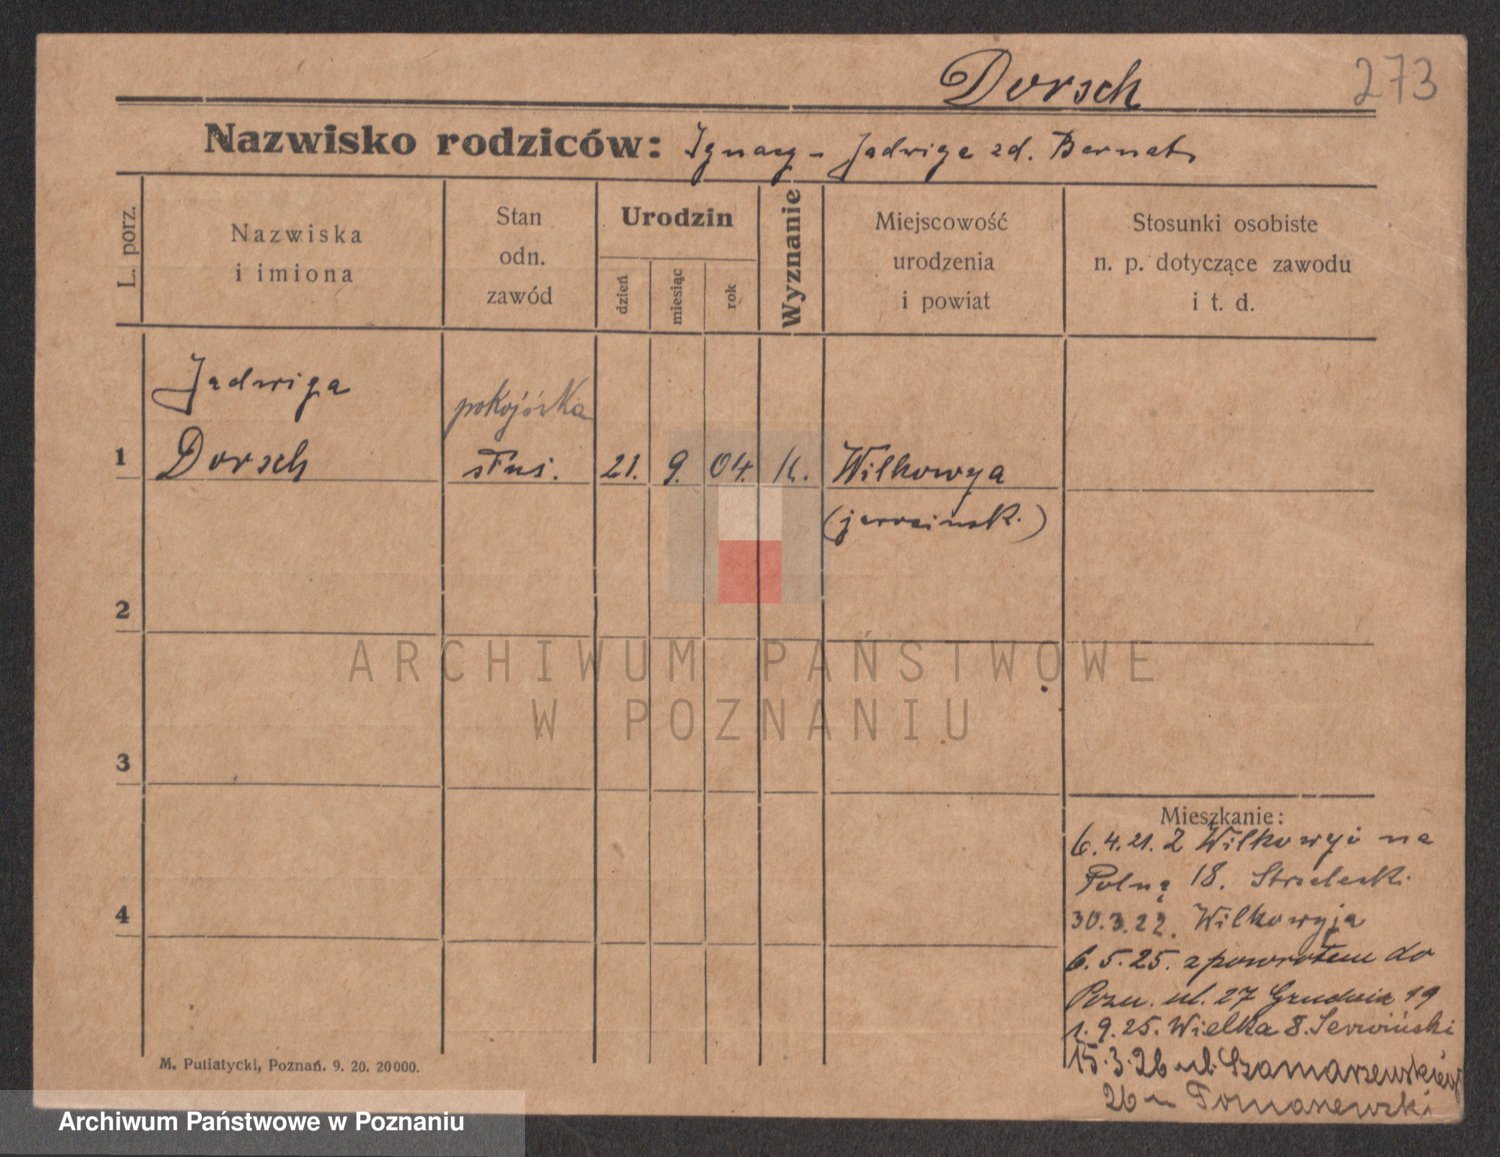 Dorsch
273
Nazwisko rodziców: Ignacy - Jadwiga zd. Bernat
L. porz.
Nazwiska
i imiona
Stan
odn.
zawód
Urodzin
dzień
miesiąc
rok
Wyznanie
Miejscowość
urodzenia
i powiat
Stosunki osobiste
n. p. dotyczące zawodu
i t. d.
Jadwiga
pokojówka
1 Dorsch służ. 21. 9. 04. k. Wilkowya
(jarocińsk.)
2
ARCHIWUM PAŃSTWOWE
W POZNANIU
3
4
Mieszkanie:
6.4.21. z Wilkowyi na
Polną 18. Strzelecki
30.3.22. Wilkowyja
6.5.25. z powrotem do
Pozn. ul. 27 Grudnia 19
1.9.25. Wielka 8.
15.3.26 ul. Szamarzewskiego
26 Tomaszewski
M. Putiatycki, Poznań. 9. 20. 20000.
Archiwum Państwowe w Poznaniu